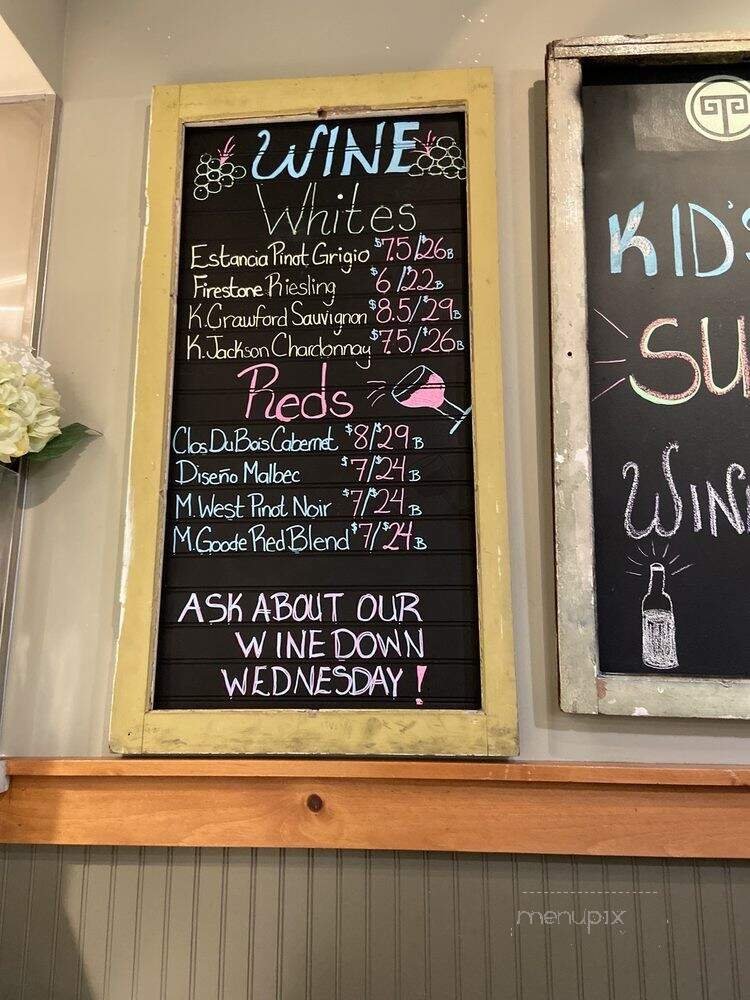 WINE
Whites
Estancia Pinot Grigio $7.5/$26B
Firestone Riesling $6/$22B
K.Crawford Sauvignon $8.5/$29B
K.Jackson Chardonnay $7.5/$26B
Reds
Clos Du Bois Cabernet $8/$29B
Diseño Malbec $7/$24B
M.West Pinot Noir $7/$24B
M.Goode Red Blend $7/$24B
ASK ABOUT OUR
WINE DOWN
WEDNESDAY!
KID'S
SU
WIN
menupix